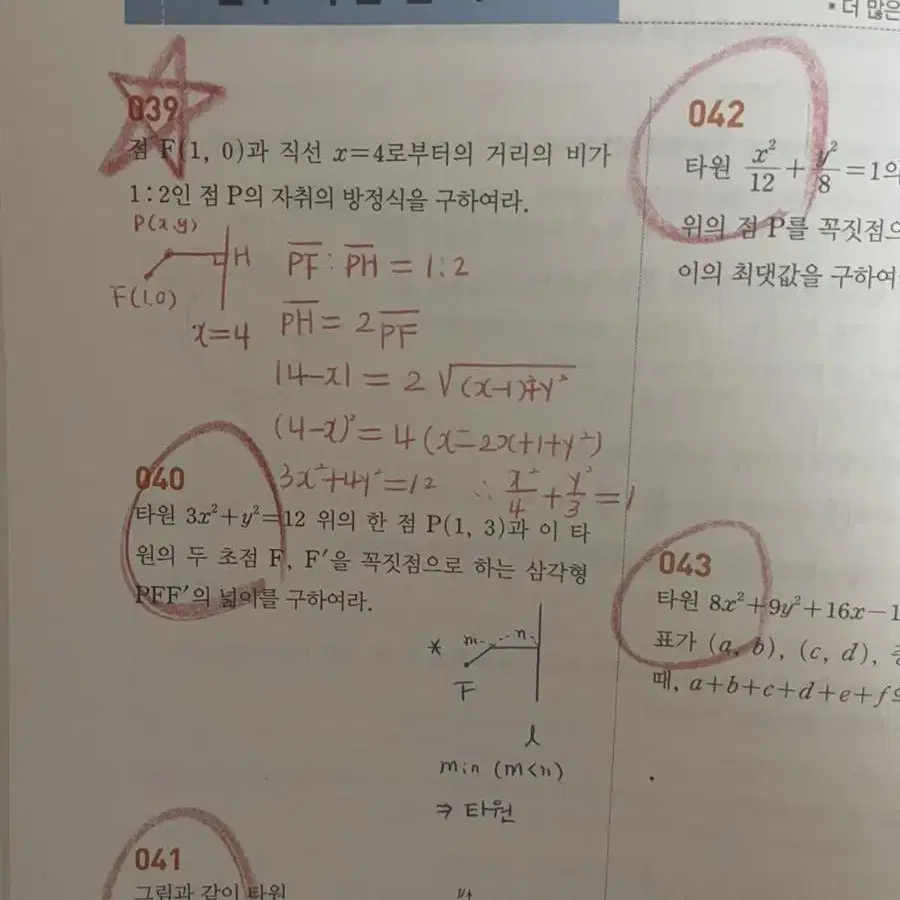 * 더 많은
039
점 F(1, 0)과 직선 x=4로부터의 거리의 비가
1:2인 점 P의 자취의 방정식을 구하여라.
P(x,y)
H
F(1,0)
x=4
PF : PH = 1:2
PH = 2PF
|4-x| = 2√(x-1)²+y²
(4-x)² = 4(x²-2x+1+y²)
3x²+4y²=12 ∴ x²/4 + y²/3 = 1
040
타원 3x²+y²=12 위의 한 점 P(1, 3)과 이 타
원의 두 초점 F, F′을 꼭짓점으로 하는 삼각형
PFF′의 넓이를 구하여라.
* m n
F
l
m:n (m<n)
⇒ 타원
041
그림과 같이 타원
042
타원 x²/12 + y²/8 = 1의
위의 점 P를 꼭짓점으
이의 최댓값을 구하여
043
타원 8x²+9y²+16x-1
표가 (a, b), (c, d),
때, a+b+c+d+e+f의